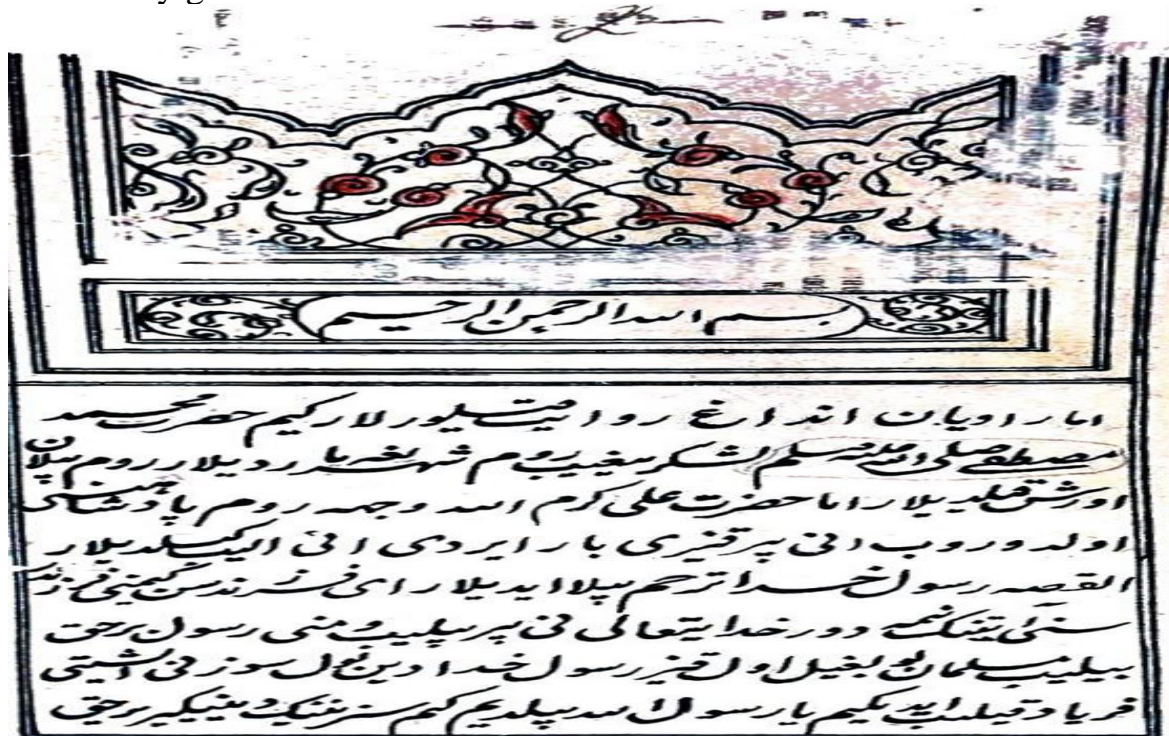 بسم الله الرحمن الرحیم
اما راویان انداغ روایت قیلورلار کیم حضرت محمد
مصطفی صلی الله علیه وسلم لشکر ییغیب روم شهریغه باردیلار روم بیلان
اورش قیلدیلار اما حضرت علی کرم الله وجهه روم پادشاسی
اولدوروب انی بر قیزی بار ایردی انی الیب کیلدیلار
القصه رسول خدا ترحم بیلا ایدیلار ای فرزند سن کیمنی
دور خدایتعالی نی بر بیلیب و منی رسول برحق
بیلیب مسلمان بولغیل اول قیز رسول خدا دین بول سوزنی اشیتی
فریاد قیلیب ایدیکیم یا رسول الله بیلدیم کیم سیزنینک دینینکیز برحق